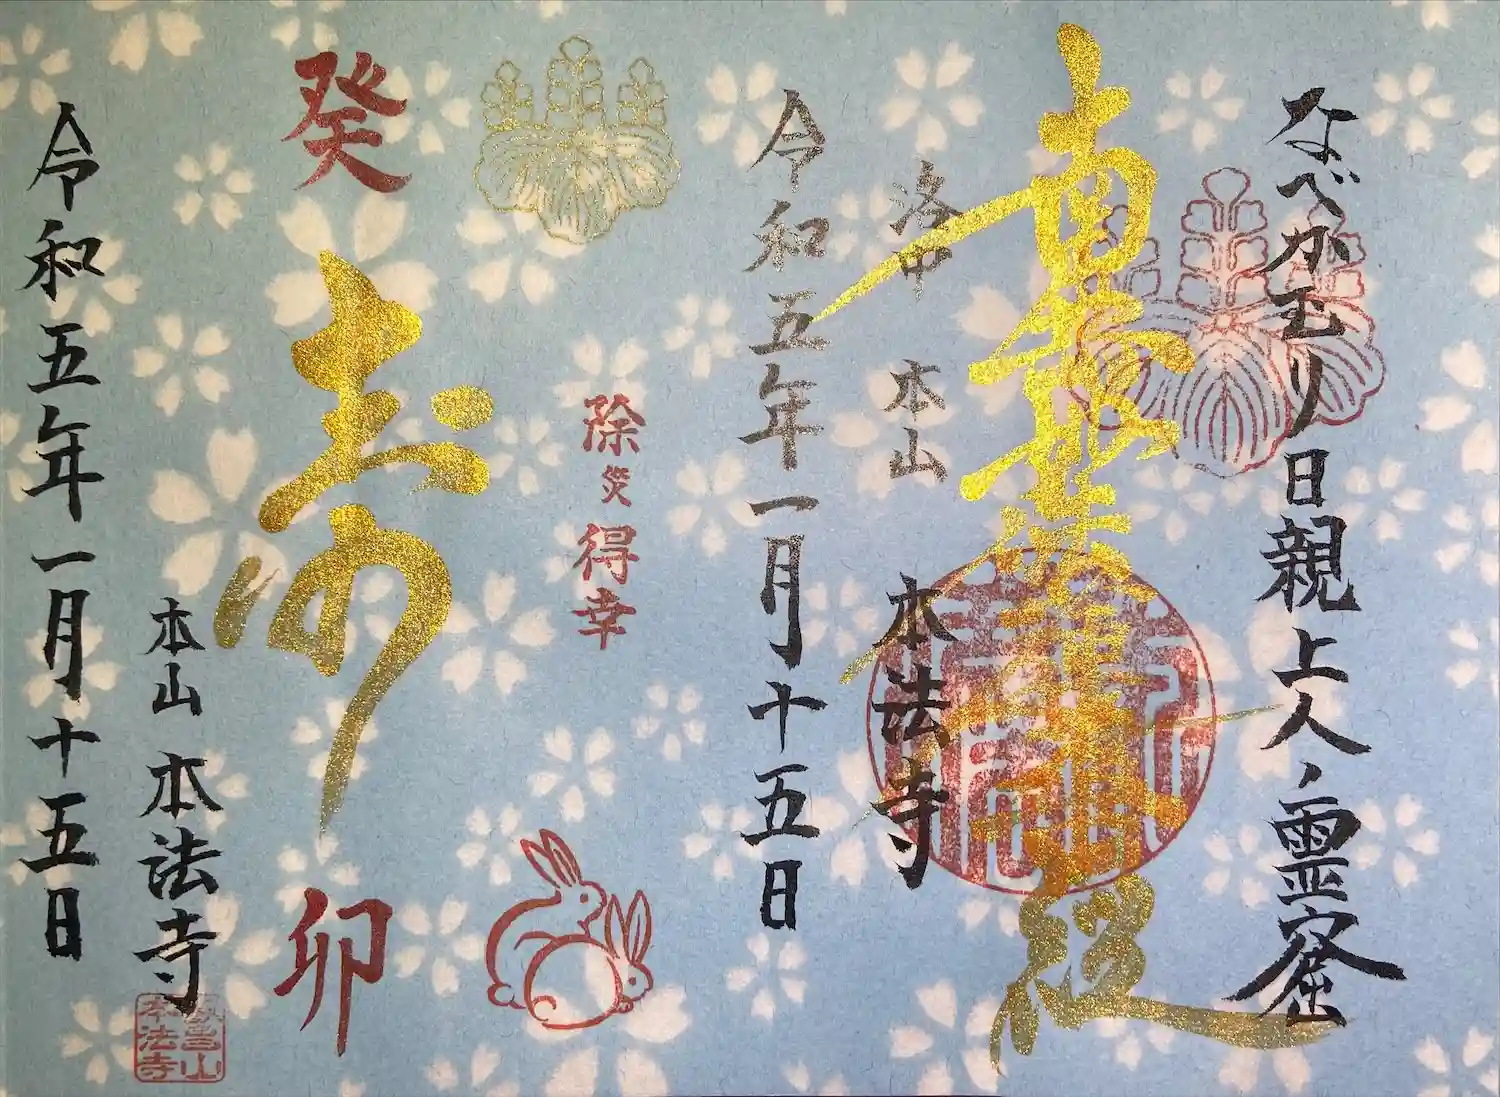 なべかむり日親上人霊窟
南無妙法蓮華経
洛中 本山 本法寺
令和五年一月十五日
除災得幸
癸
寿
卯
本山 本法寺
令和五年一月十五日
本法寺